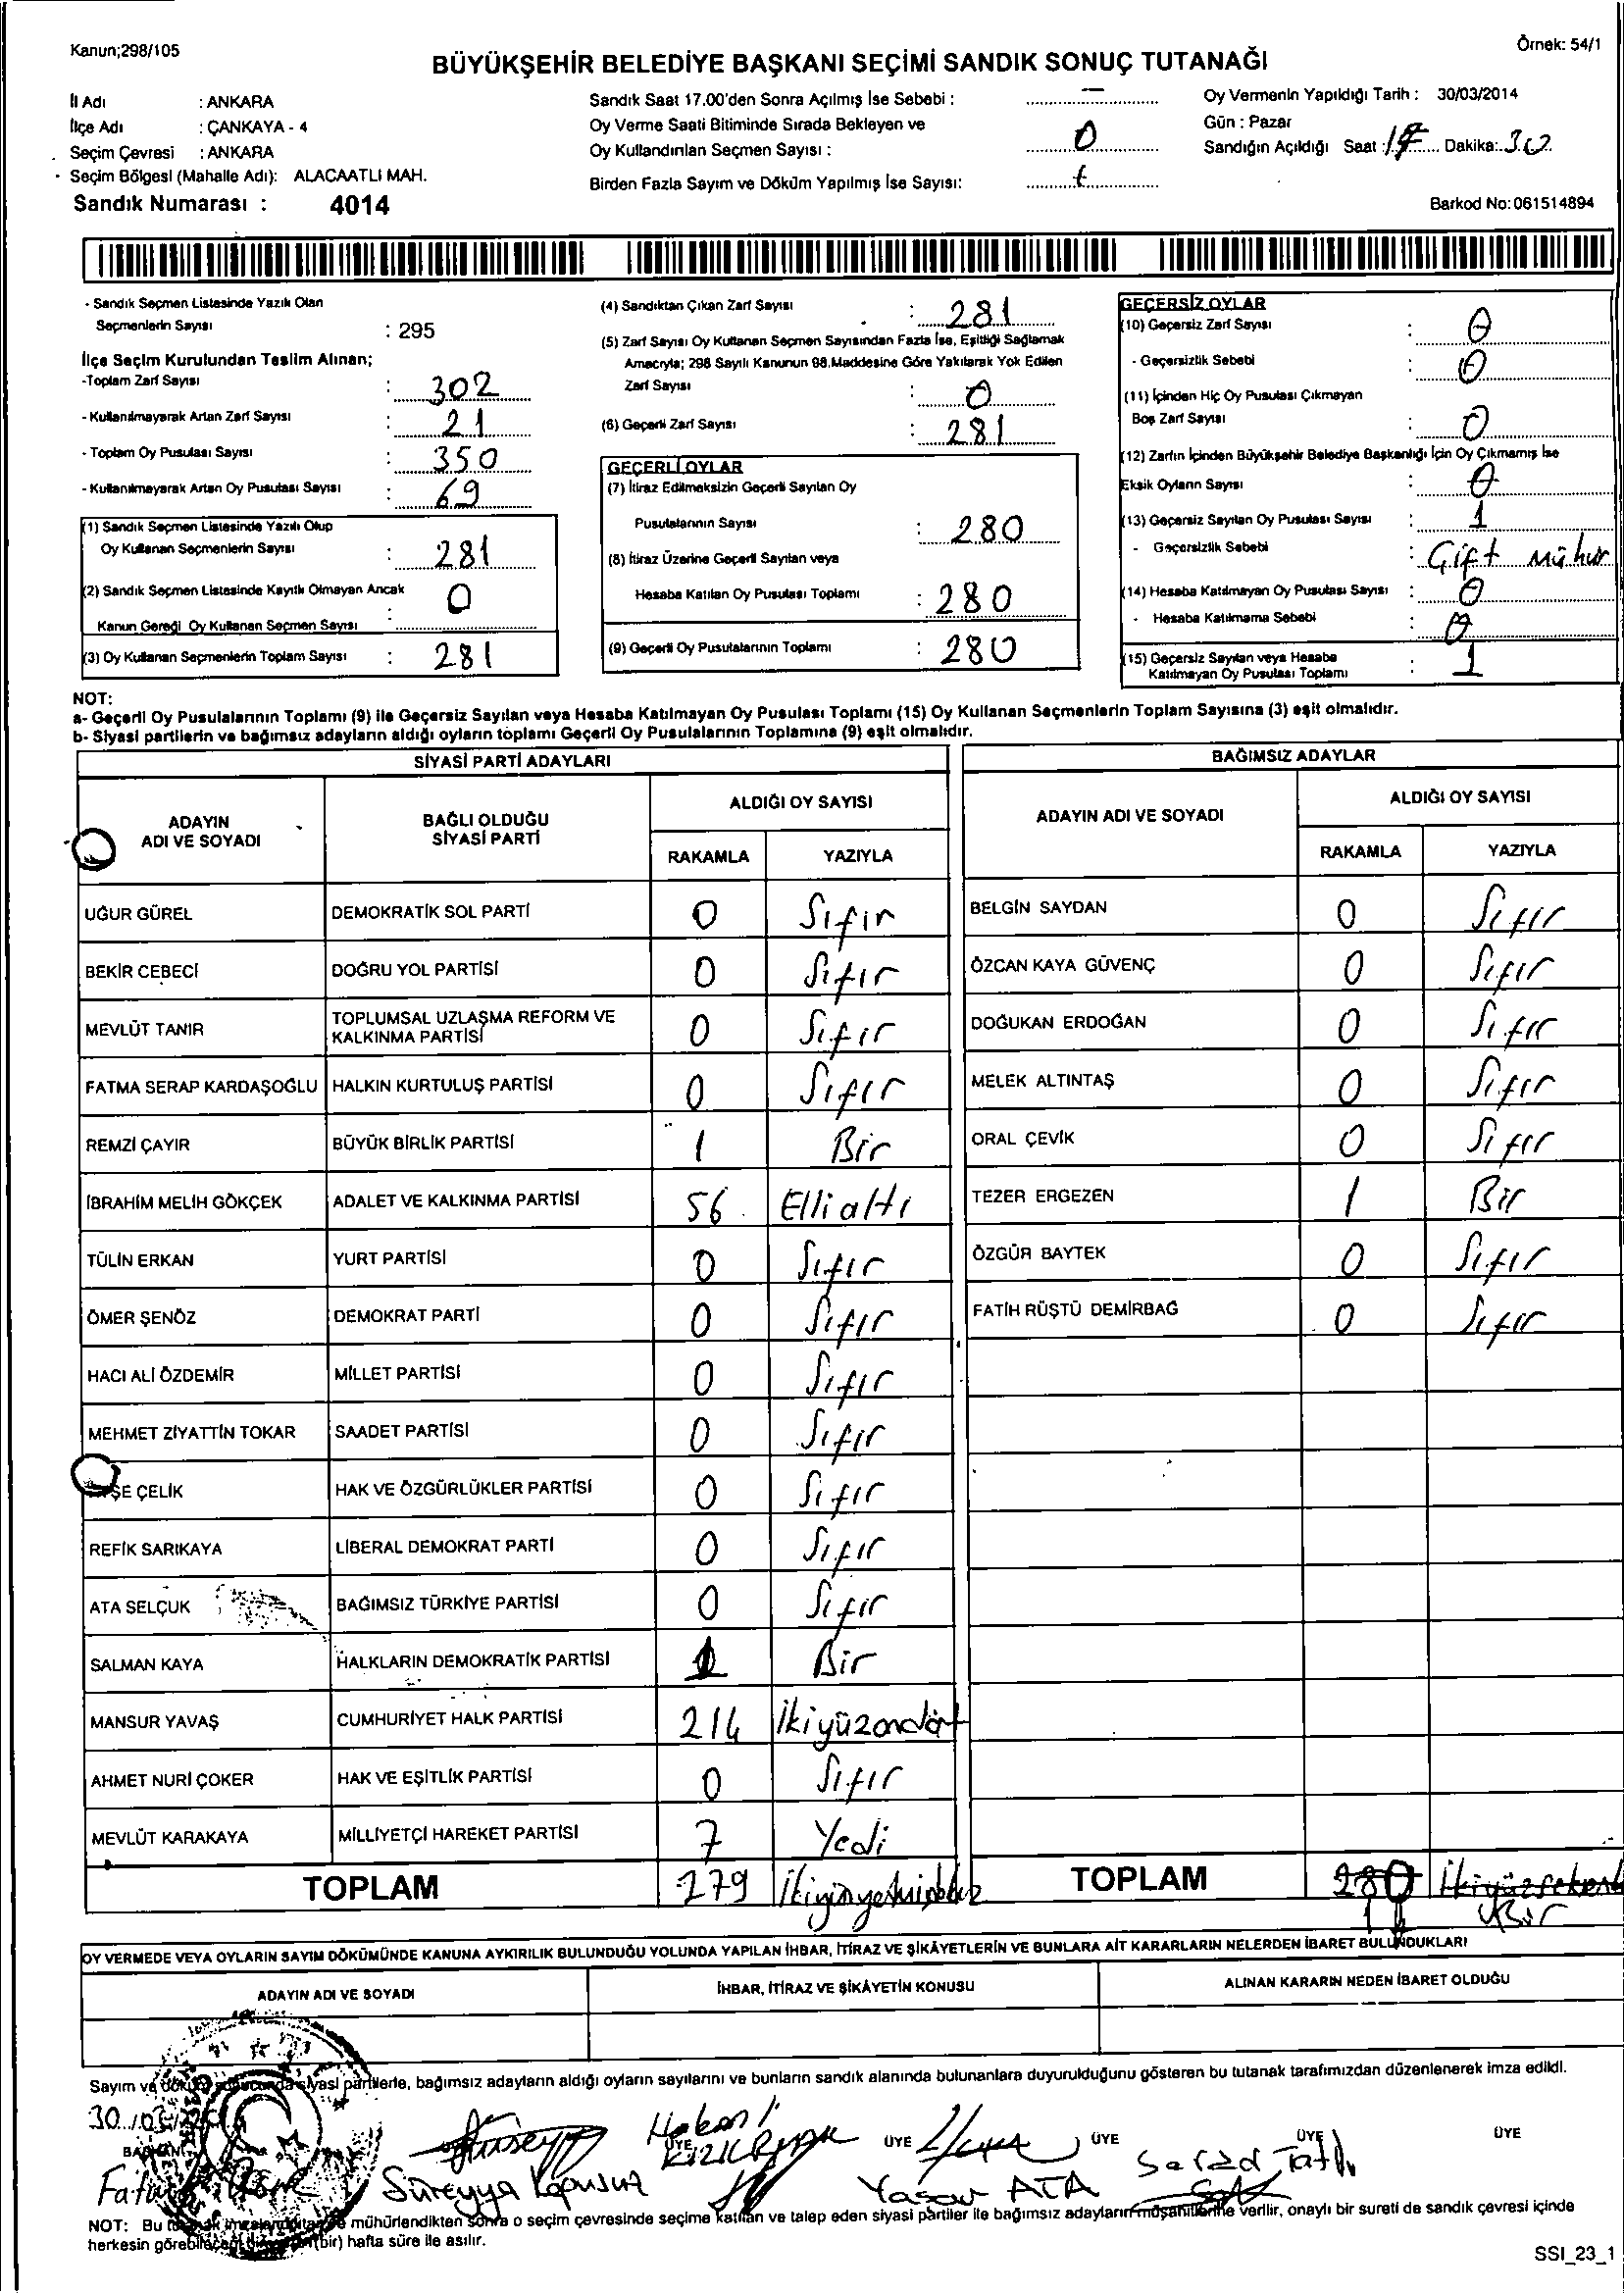 Kanun;298/105
Örnek: 54/1
BÜYÜKŞEHİR BELEDİYE BAŞKANI SEÇİMİ SANDIK SONUÇ TUTANAĞI
İl Adı : ANKARA
İlçe Adı : ÇANKAYA - 4
Seçim Çevresi : ANKARA
Seçim Bölgesi (Mahalle Adı): ALACAATLI MAH.
Sandık Numarası : 4014
Sandık Saat 17.00'den Sonra Açılmış İse Sebebi : –
Oy Verme Saati Bitiminde Sırada Bekleyen ve
Oy Kullandırılan Seçmen Sayısı : 0
Birden Fazla Sayım ve Döküm Yapılmış İse Sayısı:
Oy Vermenin Yapıldığı Tarih : 30/03/2014
Gün : Pazar
Sandığın Açıldığı Saat : 17 Dakika: 30
Barkod No:061514894
- Sandık Seçmen Listesinde Yazılı Olan
Seçmenlerin Sayısı : 295
İlçe Seçim Kurulundan Teslim Alınan;
-Toplam Zarf Sayısı : 302
- Kullanılmayarak Artan Zarf Sayısı : 21
- Toplam Oy Pusulası Sayısı : 350
- Kullanılmayarak Artan Oy Pusulası Sayısı : 69
(1) Sandık Seçmen Listesinde Yazılı Olup
Oy Kullanan Seçmenlerin Sayısı : 281
(2) Sandık Seçmen Listesinde Kayıtlı Olmayan Ancak
Kanun Gereği Oy Kullanan Seçmen Sayısı : 0
(3) Oy Kullanan Seçmenlerin Toplam Sayısı : 281
(4) Sandıktan Çıkan Zarf Sayısı : 281
(5) Zarf Sayısı Oy Kullanan Seçmen Sayısından Fazla İse, Eşitliği Sağlamak
Amacıyla; 298 Sayılı Kanunun 98.Maddesine Göre Yakılarak Yok Edilen
Zarf Sayısı : 0
(6) Geçerli Zarf Sayısı : 281
GEÇERLİ OYLAR
(7) İtiraz Edilmeksizin Geçerli Sayılan Oy
Pusulalarının Sayısı : 280
(8) İtiraz Üzerine Geçerli Sayılan veya
Hesaba Katılan Oy Pusulası Toplamı : 280
(9) Geçerli Oy Pusulalarının Toplamı : 280
GEÇERSİZ OYLAR
(10) Geçersiz Zarf Sayısı : 0
- Geçersizlik Sebebi : 0
(11) İçinden Hiç Oy Pusulası Çıkmayan
Boş Zarf Sayısı : 0
(12) Zarfın İçinden Büyükşehir Belediye Başkanlığı İçin Oy Çıkmamış İse
Eksik Oyların Sayısı : 0
(13) Geçersiz Sayılan Oy Pusulası Sayısı : 1
- Geçersizlik Sebebi : Çift Mühür
(14) Hesaba Katılmayan Oy Pusulası Sayısı : 0
- Hesaba Katılmama Sebebi : 0
(15) Geçersiz Sayılan veya Hesaba
Katılmayan Oy Pusulası Toplamı : 1
NOT:
a- Geçerli Oy Pusulalarının Toplamı (9) ile Geçersiz Sayılan veya Hesaba Katılmayan Oy Pusulası Toplamı (15) Oy Kullanan Seçmenlerin Toplam Sayısına (3) eşit olmalıdır.
b- Siyasi partilerin ve bağımsız adayların aldığı oyların toplamı Geçerli Oy Pusulalarının Toplamına (9) eşit olmalıdır.
SİYASİ PARTİ ADAYLARI
ADAYIN ADI VE SOYADI
BAĞLI OLDUĞU SİYASİ PARTİ
ALDIĞI OY SAYISI
RAKAMLA YAZIYLA
UĞUR GÜREL DEMOKRATİK SOL PARTİ 0 Sıfır
BEKİR CEBECİ DOĞRU YOL PARTİSİ 0 Sıfır
MEVLÜT TANIR TOPLUMSAL UZLAŞMA REFORM VE KALKINMA PARTİSİ 0 Sıfır
FATMA SERAP KARDAŞOĞLU HALKIN KURTULUŞ PARTİSİ 0 Sıfır
REMZİ ÇAYIR BÜYÜK BİRLİK PARTİSİ 1 Bir
İBRAHİM MELİH GÖKÇEK ADALET VE KALKINMA PARTİSİ 56 Elli altı
TÜLİN ERKAN YURT PARTİSİ 0 Sıfır
ÖMER ŞENÖZ DEMOKRAT PARTİ 0 Sıfır
HACI ALİ ÖZDEMİR MİLLET PARTİSİ 0 Sıfır
MEHMET ZİYATTİN TOKAR SAADET PARTİSİ 0 Sıfır
ŞE ÇELİK HAK VE ÖZGÜRLÜKLER PARTİSİ 0 Sıfır
REFİK SARIKAYA LİBERAL DEMOKRAT PARTİ 0 Sıfır
ATA SELÇUK BAĞIMSIZ TÜRKİYE PARTİSİ 0 Sıfır
SALMAN KAYA HALKLARIN DEMOKRATİK PARTİSİ 1 Bir
MANSUR YAVAŞ CUMHURİYET HALK PARTİSİ 214 İkiyüzondört
AHMET NURİ ÇOKER HAK VE EŞİTLİK PARTİSİ 0 Sıfır
MEVLÜT KARAKAYA MİLLİYETÇİ HAREKET PARTİSİ 7 Yedi
TOPLAM 279
BAĞIMSIZ ADAYLAR
ADAYIN ADI VE SOYADI
ALDIĞI OY SAYISI
RAKAMLA YAZIYLA
BELGİN SAYDAN 0 Sıfır
ÖZCAN KAYA GÜVENÇ 0 Sıfır
DOĞUKAN ERDOĞAN 0 Sıfır
MELEK ALTINTAŞ 0 Sıfır
ORAL ÇEVİK 0 Sıfır
TEZER ERGEZEN 1 Bir
ÖZGÜR BAYTEK 0 Sıfır
FATİH RÜŞTÜ DEMİRBAĞ 0 Sıfır
TOPLAM 280
1 Bir
OY VERMEDE VEYA OYLARIN SAYIM DÖKÜMÜNDE KANUNA AYKIRILIK BULUNDUĞU YOLUNDA YAPILAN İHBAR, İTİRAZ VE ŞİKÂYETLERİN VE BUNLARA AİT KARARLARIN NELERDEN İBARET BULUNDUKLARI
ADAYIN ADI VE SOYADI
İHBAR, İTİRAZ VE ŞİKÂYETİN KONUSU
ALINAN KARARIN NEDEN İBARET OLDUĞU
Sayım ve döküm sonucunda siyasi partilerle, bağımsız adayların aldığı oyların sayılarını ve bunların sandık alanında bulunanlara duyurulduğunu gösteren bu tutanak tarafımızdan düzenlenerek imza edildi.
30/03/
BAŞKAN ÜYE ÜYE ÜYE ÜYE ÜYE
Süreyya Hakan Yaşar ATA Serad Tatlı
NOT: Bu tutanak imzalandıktan ve mühürlendikten sonra o seçim çevresinde seçime katılan ve talep eden siyasi partiler ile bağımsız adayların müşahitlerine verilir, onaylı bir sureti de sandık çevresi içinde
herkesin görebileceği bir yere (bir) hafta süre ile asılır.
SSI_23_1